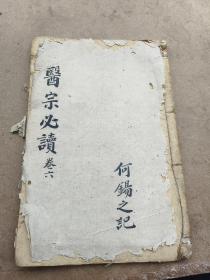 醫宗必讀 卷六
何鍚之記